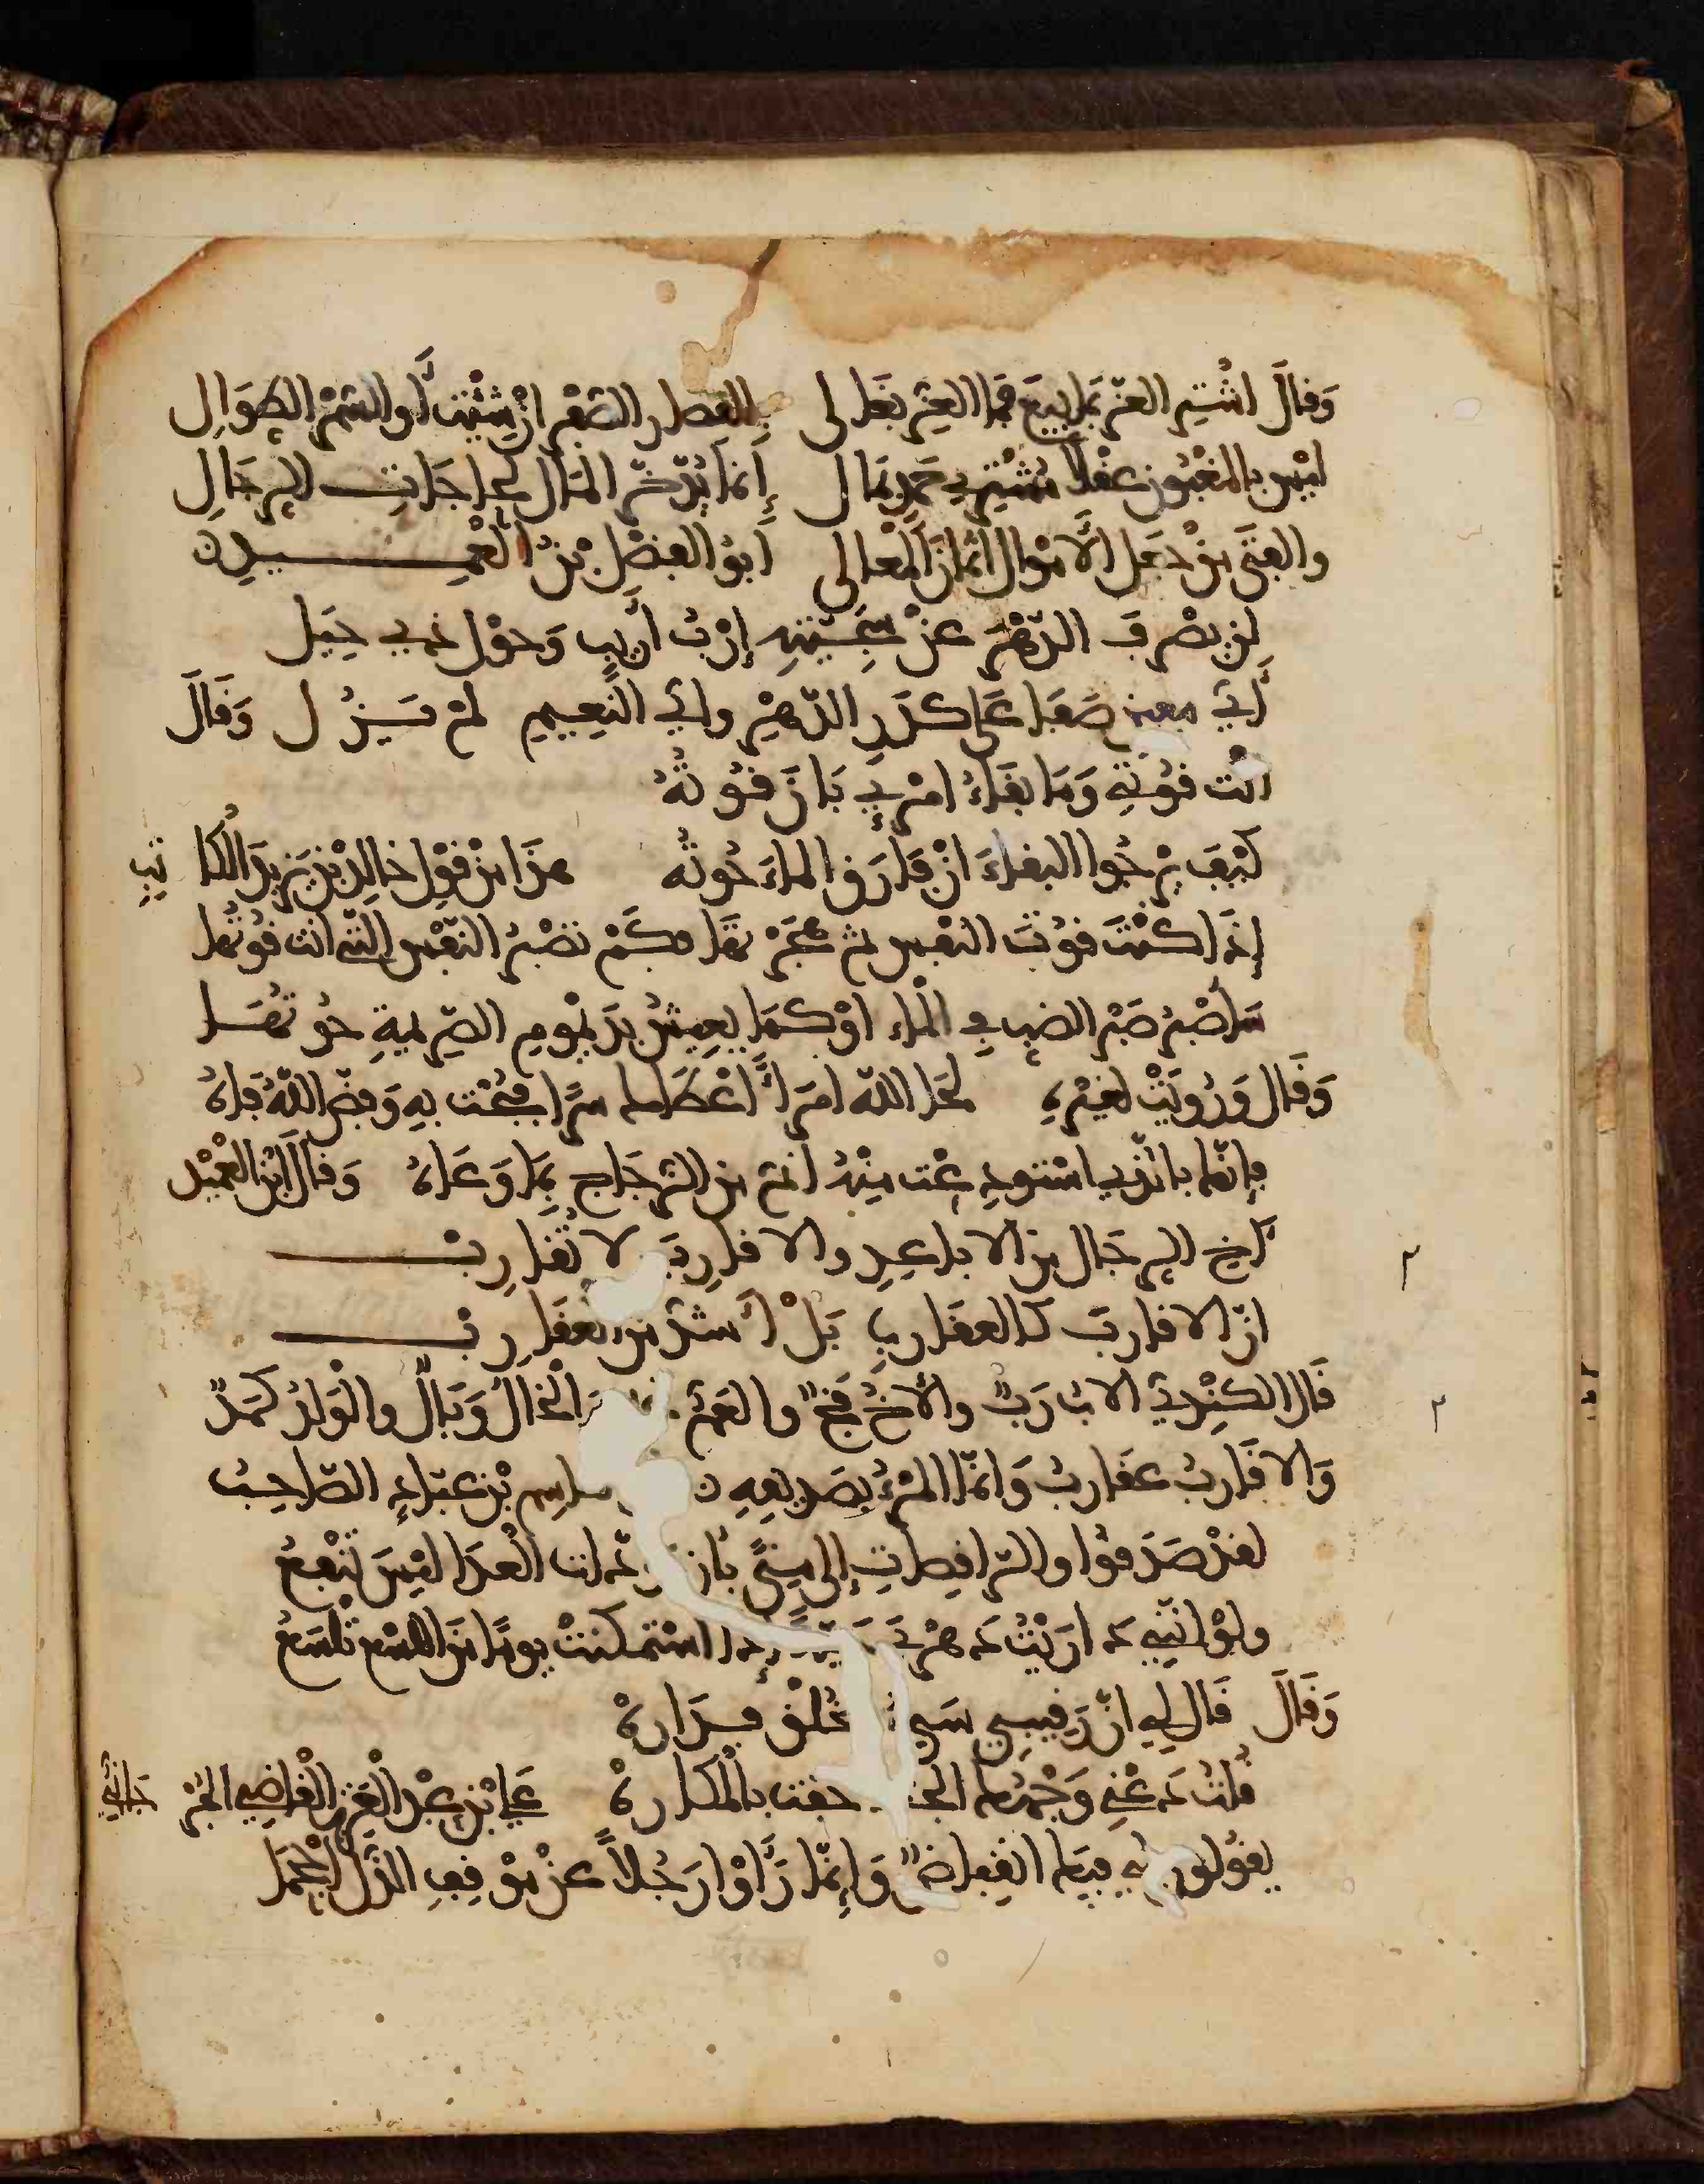 وَقَالَ اشْتَرِ العِزّ بمَا بِيعَ فمَا العِزّ بغَالى بالقصار الصُّفْرِ انْ شِئْتَ أو السُّمْرِ الطِوَالِ
ليْسَ بالمغْبُونِ عقْلاً مُشْتَرِي عِزّ بمَال إنمَا يُدّخَرُ المَالُ لحاجَاتِ الرجَالِ
والفتَى منْ جَعَل الأمْوالَ اثمانَ المعَالى أبُو الفضْلِ بْنُ العَمِيدِ
لن يصْرِفَ الدّهْرَ عنْ سَجِيّتِهِ إرْبُ أرِيبٍ وَحوْل ذي حِيَل
أَيُّ معين صَفَا عَلَى كدَرِ الدّهْرِ وايُّ النَّعِيمِ لمْ يَزُل وَقَالَ
انْت قُوتي وَمَا بقَاءُ امْرِئٍ بَانَ قُوتُهُ
كيْفَ يرْجُوا البقاءَ انْ فارَقَ الماءَ حُوتُه هذَا منْ قوْلِ خالِدِ بْنِ يَزِيدَ الكاتِبِ
إذَا كنْتَ قُوتَ النّفْسِ ثم هَجَرْتهَا فكَمْ تصْبِرُ النّفْسُ التي انْت قُوتُها
سَاصْبِرُ صَبْرَ الضبِ في الماء اوْ كمَا يعِيشُ بدَيْمُومِ الصّرِيمةِ حُوتُهَا
وَقَال وَرُوِيَتْ لغيْرِهِ لحَا اللّه امْرأً أعْطَاك سِرًّا فبُحْت بِهِ وَفضّ اللّهُ فَاهُ
فإنّما بالّذي استودِعْت مِنْهُ أنَمُّ من الزّجَاجِ بِمَا وَعَاهُ وَقالَ ابْن العَمِيْد
آخِ الرِجَالَ من الاباعِدِ والاقارِبَ لا تُقَارِبْ
انّ الاقارِبَ كالعقَارِبِ بَلْ أشدّ من العقَارِبْ
قَال الكِنْدِيّ الابُ رَبٌّ والأخُ فَخٌّ والعَمُّ غم وَالخَالُ وَبَالٌ والوَلَدُ كَمَدٌ
وَالاقَارِبُ عقَارِبُ وَانمّا المرْءُ بصَدِيقِهِ القاسِمِ بْن عبّادٍ الصّاحِبُ
لقدْ صَدَقُوا والرّاقِصاتِ إلى مِنًى بأنّ مودّات العِدَا ليْسَ تنْفَعُ
ولوْ انّنِي دَارَيْتُ دَهْرِي حَيّةً إذا اسْتمكَنتْ يومًا منَ اللسْعِ تلْسَعُ
وَقَالَ قَال لِي انّ رَقيبِي سَيّئ الخُلْقِ فدَارِهْ
قُلتُ دَعْني وَجْهُك الجنّة حفت بالمكارِهْ عَلِيّ بْن عبْدِ العَزِيزِ القاضِي الجُرْجَانِيُّ
يقُولون لي فيك انقِباضٌ وَإنّمَا رَأوْا رَجُلاً عنْ موْقِفِ الذّل أحْجَمَا